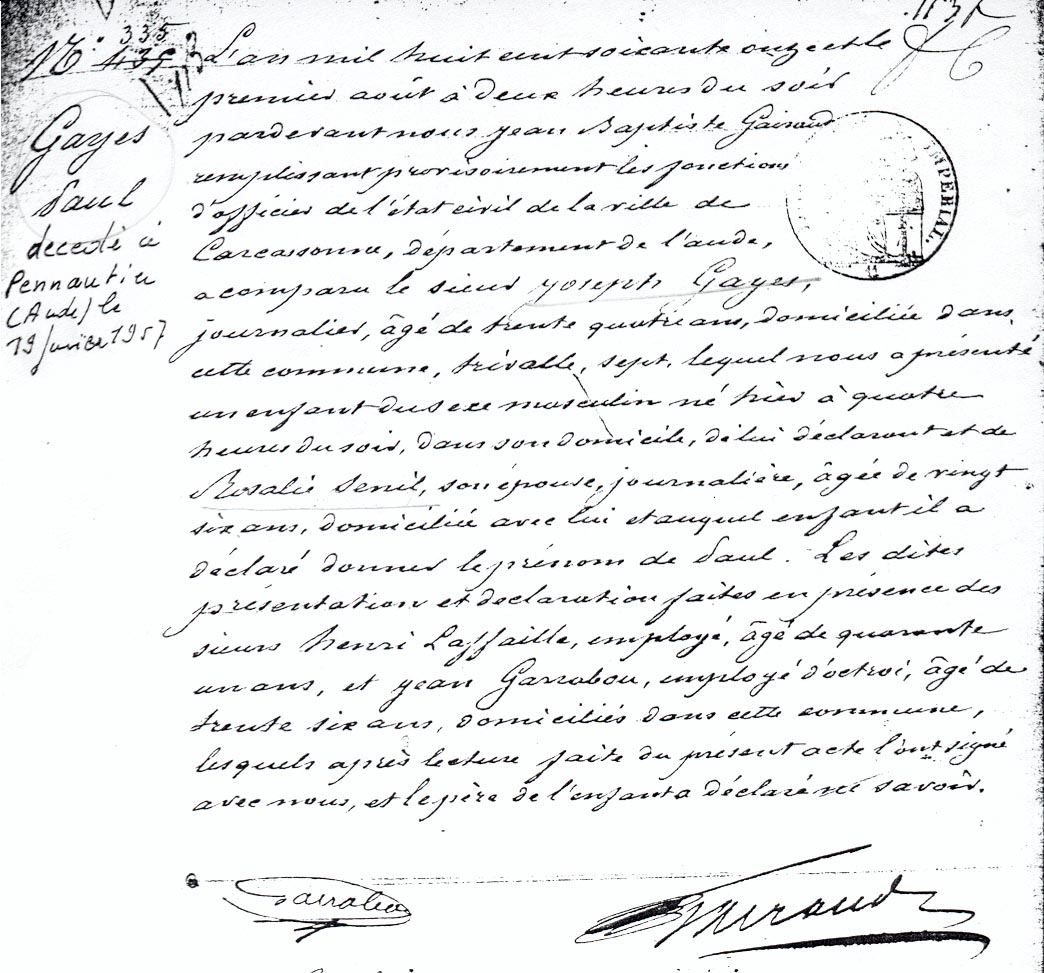 N° 439
335
Gayes
Paul
décédé à
Pennautier
(Aude) le
19 janvier 1957
L'an mil huit cent soixante onze et le
premier août à deux heures du soir
pardevant nous jean Baptiste Gairaud
remplissant provisoirement les fonctions
d'officier de l'état civil de la ville de
Carcassonne, département de l'aude,
a comparu le sieur yoseph Gayes,
journalier, âgé de trente quatre ans, domiciliée dans
cette commune, trivalle, sept, lequel nous a présenté
un enfant du sexe masculin né hièr à quatre
heures du soir, dans son domicile, de lui déclarant et de
Rosalie Senil, son épouse, journalière, âgée de vingt
six ans, domiciliée avec lui et auquel enfant il a
déclaré donner le prénom de Paul. Les dites
présentation et declaration faites en présence des
sieurs henri Laffaille, employé, âgé de quarante
un ans, et jean Garrabou, employé d'octroi, âgé de
trente six ans, domiciliés dans cette commune,
lesquels après lecture faite du présent acte l'ont signé
avec nous, et le père de l'enfant a déclaré ne savoir.
IMPERIAL.
Garrabou
Gairaud